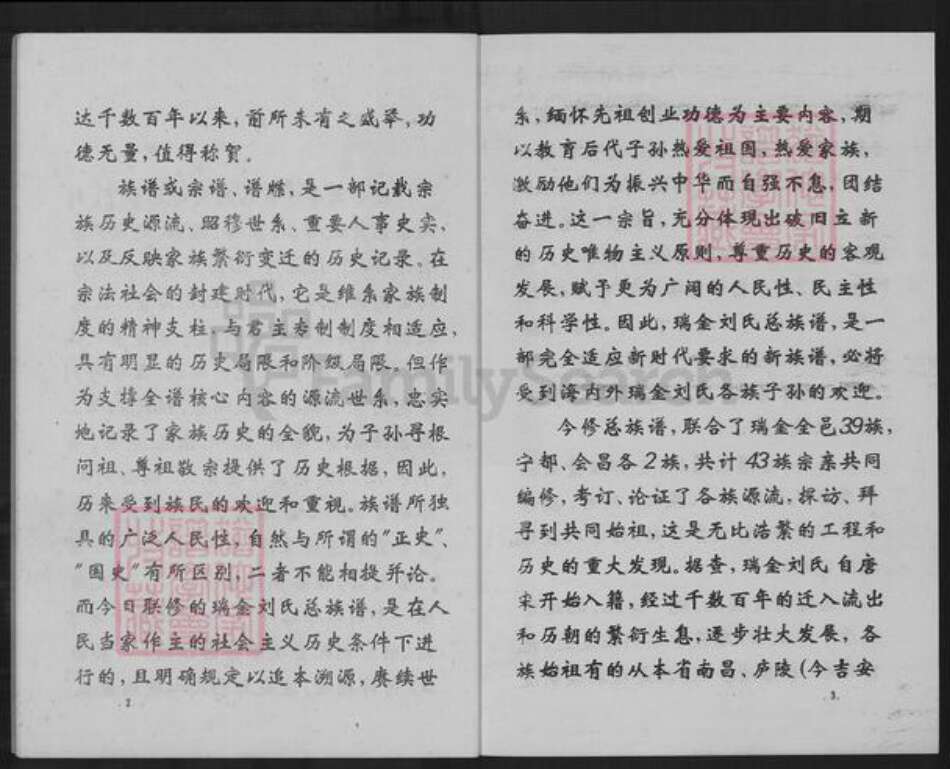 达千数百年以来，前所未有之盛举，功
德无量，值得称贺。
族谱或宗谱、谱牒，是一部记载宗
族历史源流、昭穆世系、重要人事史实，
以及反映家族繁衍变迁的历史记录。在
宗法社会的封建时代，它是维系家族制
度的精神支柱，与君主专制制度相适应，
具有明显的历史局限和阶级局限。但作
为支撑全谱核心内容的源流世系，忠实
地记录了家族历史的全貌，为子孙寻根
问祖、尊祖敬宗提供了历史根据，因此，
历来受到族民的欢迎和重视。族谱所独
具的广泛人民性，自然与所谓的"正史"、
"国史"有所区别，二者不能相提并论。
而今日联修的瑞金刘氏总族谱，是在人
民当家作主的社会主义历史条件下进
行的，且明确规定以追本溯源，赓续世
2
系，缅怀先祖创业功德为主要内容，期
以教育后代子孙热爱祖国，热爱家族，
激励他们为振兴中华而自强不息，团结
奋进。这一宗旨，充分体现出破旧立新
的历史唯物主义原则，尊重历史的客观
发展，赋予更为广阔的人民性、民主性
和科学性。因此，瑞金刘氏总族谱，是一
部完全适应新时代要求的新族谱，必将
受到海内外瑞金刘氏各族子孙的欢迎。
今修总族谱，联合了瑞金全邑39族，
宁都、会昌各2族，共计43族宗亲共同
编修，考订、论证了各族源流，探访、拜
寻到共同始祖，这是无比浩繁的工程和
历史的重大发现。据查，瑞金刘氏自唐
宋开始入籍，经过千数百年的迁入流出
和历朝的繁衍生息，逐步壮大发展，各
族始祖有的从本省南昌、庐陵(今吉安
3
FamilySearch